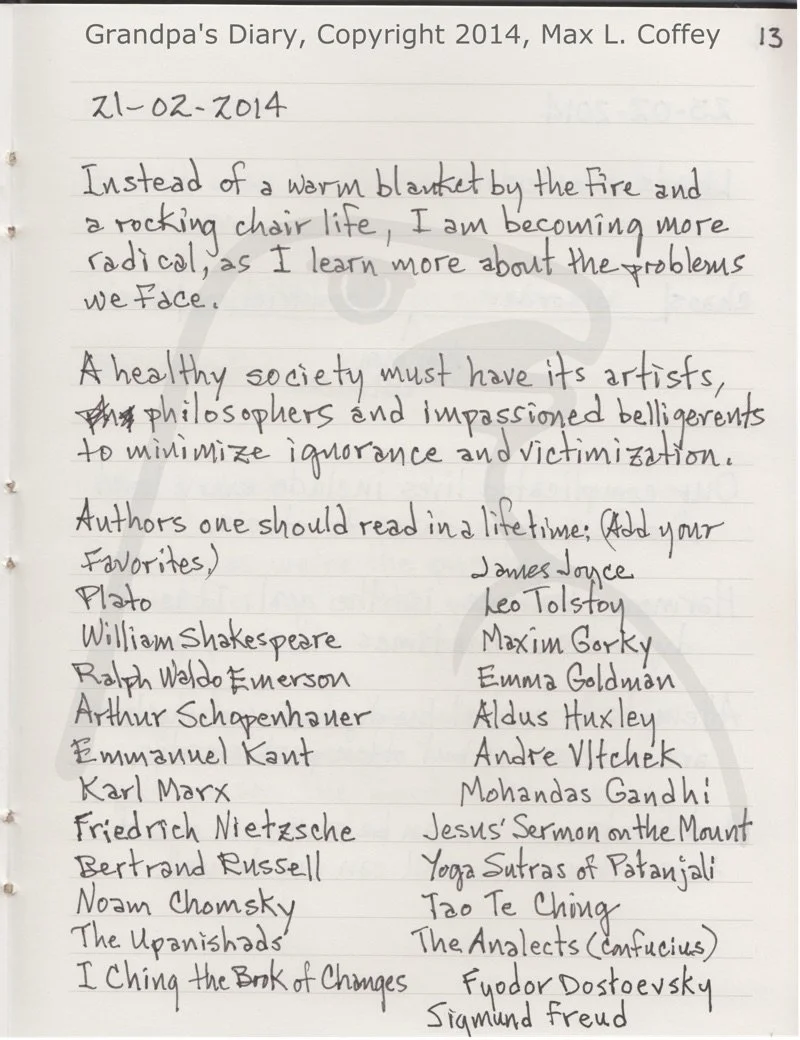 Grandpa's Diary, Copyright 2014, Max L. Coffey 13
21-02-2014
Instead of a warm blanket by the Fire and
a rocking chair life, I am becoming more
radical, as I learn more about the problems
we Face.
A healthy society must have its artists,
philosophers and impassioned belligerents
to minimize ignorance and victimization.
Authors one should read in a lifetime: (Add your
Favorites,)
James Joyce
Plato
Leo Tolstoy
William Shakespeare
Maxim Gorky
Ralph Waldo Emerson
Emma Goldman
Arthur Schopenhauer
Aldus Huxley
Emmanuel Kant
Andre Vltchek
Karl Marx
Mohandas Gandhi
Friedrich Nietzsche
Jesus' Sermon on the Mount
Bertrand Russell
Yoga Sutras of Patanjali
Noam Chomsky
Tao Te Ching
The Upanishads
The Analects (Confucius)
I Ching the Book of Changes
Fyodor Dostoevsky
Sigmund Freud